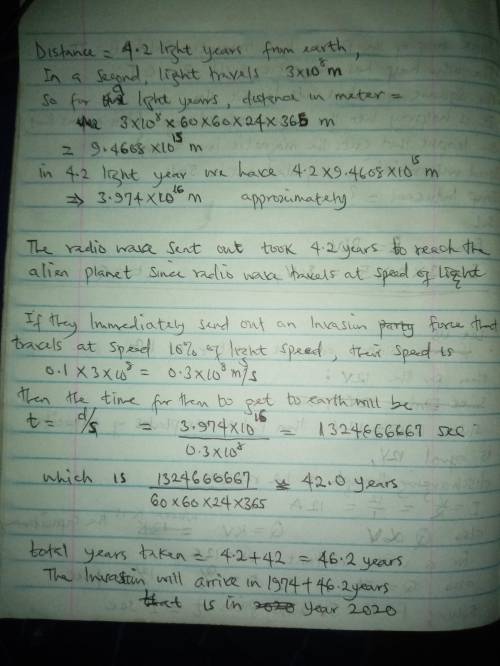 Distance = 4.2 light years from earth,
In a second, light travels 3x10⁸ m
So for a light years, distance in meter =
3x10⁸ x 60x60x24x365 m
= 9.4608x10¹⁵ m
in 4.2 light year we have 4.2x9.4608x10¹⁵ m
⇒ 3.974x10¹⁶ m approximately
The radio wave sent out took 4.2 years to reach the
alien planet since radio wave travels at speed of light
If they Immediately send out an Invasion party force that
travels at speed 10% of light speed, their speed is
0.1 x 3x10⁸ = 0.3x10⁸ m/s
then the time for them to get to earth will be
t = d/s = 3.974x10¹⁶ / 0.3x10⁸ = 1324666667 sec
which is 1324666667 / 60x60x24x365 ≈ 42.0 years
total years taken = 4.2+42 = 46.2 years
The Invasion will arrive in 1974+46.2years
that is in 2020 year 2020